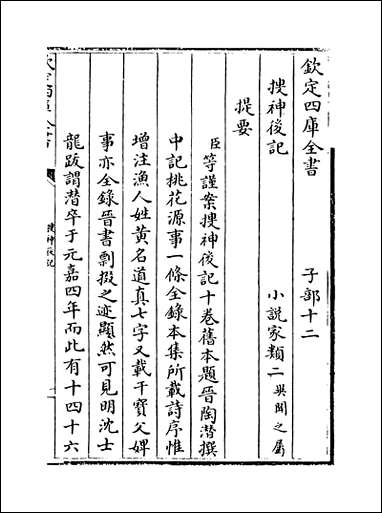 欽定四庫全書　子部十二
搜神後記　小說家類二異聞之屬
提要
臣等謹案搜神後記十卷舊本題晉陶潛撰
中記桃花源事一條全錄本集所載詩序惟
增注漁人姓黃名道真七字又載干寳父婢
事亦全錄晉書剽掇之迹顯然可見明沈士
龍跋謂潛卒于元嘉四年而此有十四十六
搜神後記